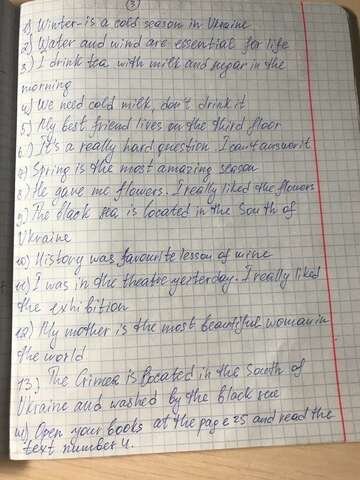 3
1) Winter - is a cold season in Ukraine
2) Water and wind are essential for life
3) I drink tea with milk and sugar in the
morning
4) We need cold milk, don't drink it
5) My best friend lives on the third floor
6.) It's a really hard question. I can't answer it
7) Spring is the most amazing season
8) He gave me flowers. I really liked the flowers
9) The black sea is located in the South of
Ukraine
10) History was favourite lesson of mine
11) I was in the theatre yesterday. I really liked
the exhibition
12) My mother is the most beautiful woman in
the world
13.) The Crimea is located in the South of
Ukraine and washed by the black sea
14) Open your books at the page 25 and read the
text number 4.